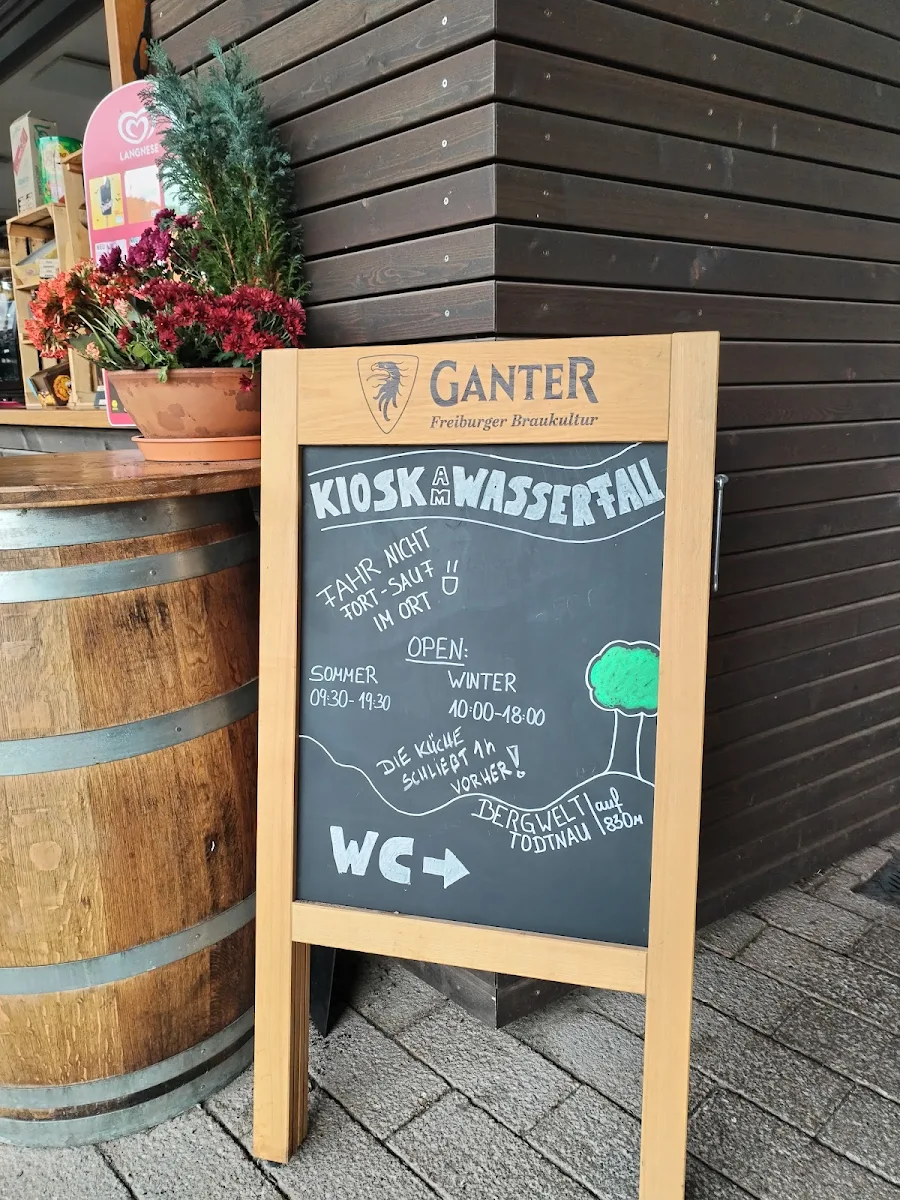 LANGNESE
GANTER
Freiburger Braukultur
KIOSK AM WASSERFALL
FAHR NICHT
FORT-SAUF
IM ORT
OPEN:
SOMMER
09:30-19:30
WINTER
10:00-18:00
DIE KÜCHE
SCHLIEßT 1h
VORHER!
BERGWELT
TODTNAU
auf
830M
WC